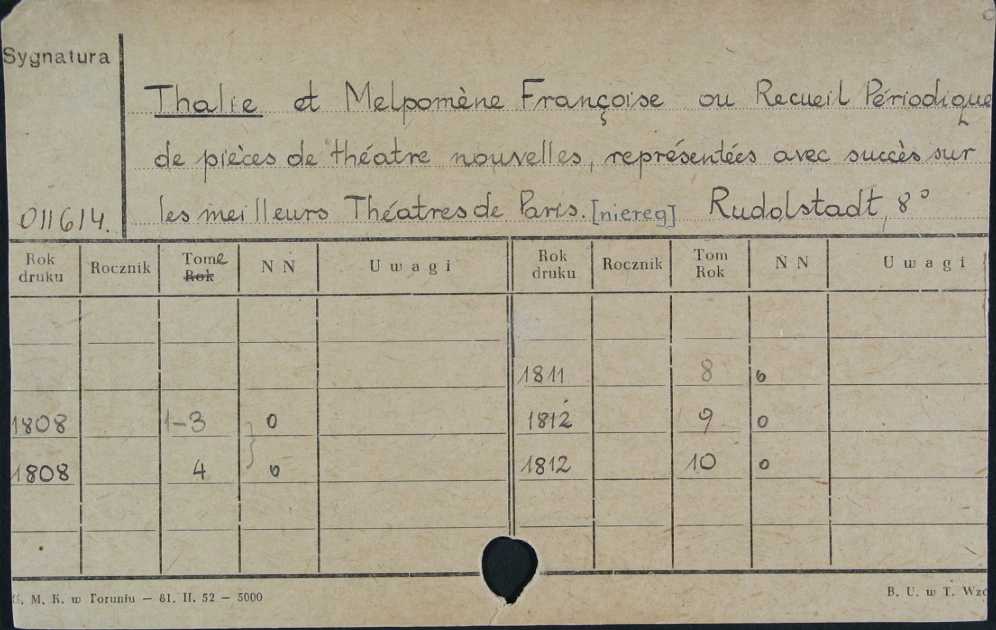 Sygnatura
Thalie et Melpomène Françoise ou Recueil Périodique
de pièces de théatre nouvelles, représentées avec succès sur
011614. les meilleurs Théatres de Paris. [niereg] Rudolstadt, 8°
Rok druku Rocznik Tome Rok N N Uwagi Rok druku Rocznik Tom Rok N N Uwagi
1811 8 0
1808 1-3 0 1812 9 0
1808 4 0 1812 10 0
U. M. K. w Toruniu — 61. II. 52 — 5000 B. U. w T. Wzó